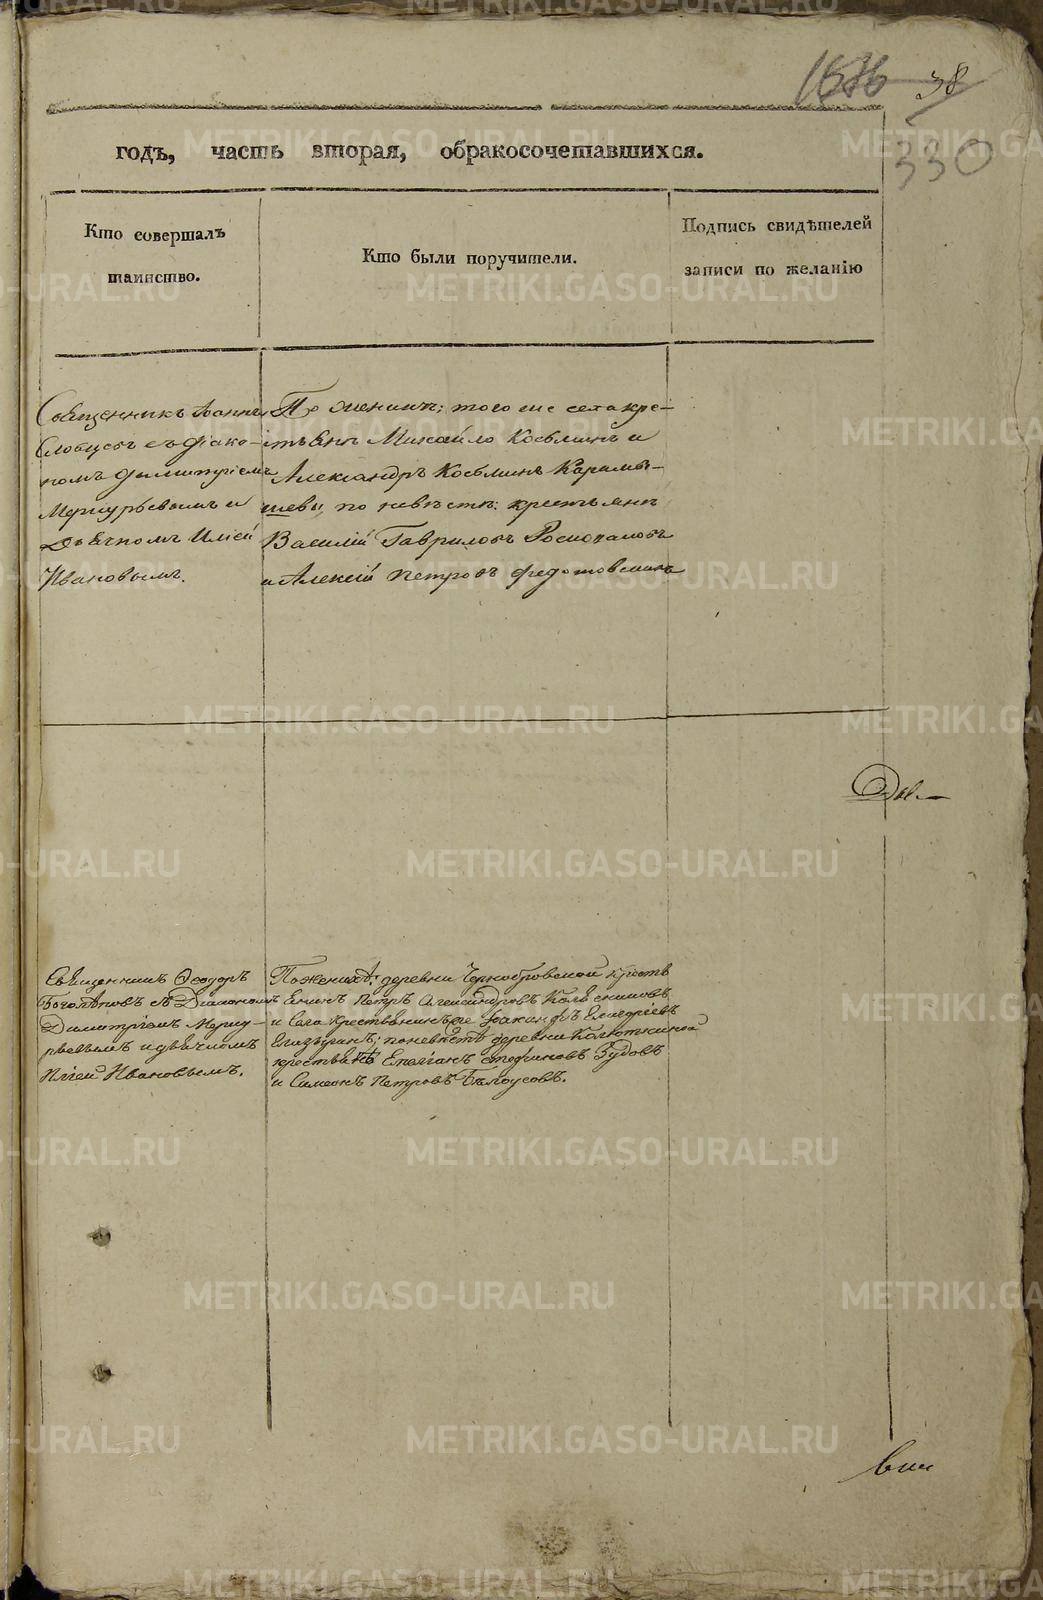 1676 38
330
годъ, часть вторая, обракосочетавшихся.
Кто совершалъ
таинство.
Кто были поручители.
Подпись свидѣтелей
записи по желанію
Священникъ Іоаннъ
Словцовъ съ діако-
номъ Димитріемъ
Меркурьевымъ и
Дьячкомъ Иліей
Ивановымъ.
По женихѣ: того же села кре-
стьяне Михайло Козминъ и
Александръ Козминъ Карамы-
шевы, по невѣстѣ: крестьяне
Василій Гавриловъ
и Алексій Петровъ
Дві-
Священникъ Ѳеодоръ
Боголѣповъ съ Діакономъ
Димитріемъ Мерку-
рьевымъ и дьячкомъ
Иліей Ивановымъ.
По женихѣ: деревни Чернобровской кресть
янинъ Петръ Александровъ Колясниковъ
и села крестьянинъ же
по невѣстѣ деревни
крестьяне Зудовъ
и Симеонъ Петровъ Бѣлоусовъ.
METRIKI.GASO-URAL.RU